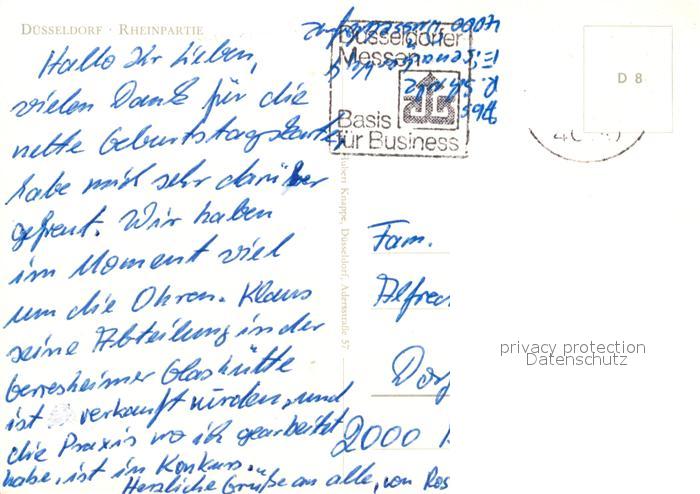 DÜSSELDORF · RHEINPARTIE
Hallo Ihr Lieben,
vielen Dank für die
nette Geburtstagskarte
habe mich sehr darüber
gefreut. Wir haben
im Moment viel
um die Ohren. Klaus
seine Abteilung in der
Gerresheimer Glashütte
ist verkauft wurden, und
die Praxis wo ich gearbeitet
habe, ist in Konkurs.
Herzliche Grüße an alle, von Ros
Abs
4000 Düsseldorf
Düsseldorfer
Messen
Basis
für Business
D 8
Hubert Knappe, Düsseldorf, Adersstraße 57
Fam.
Alfred
2000
privacy protection
Datenschutz